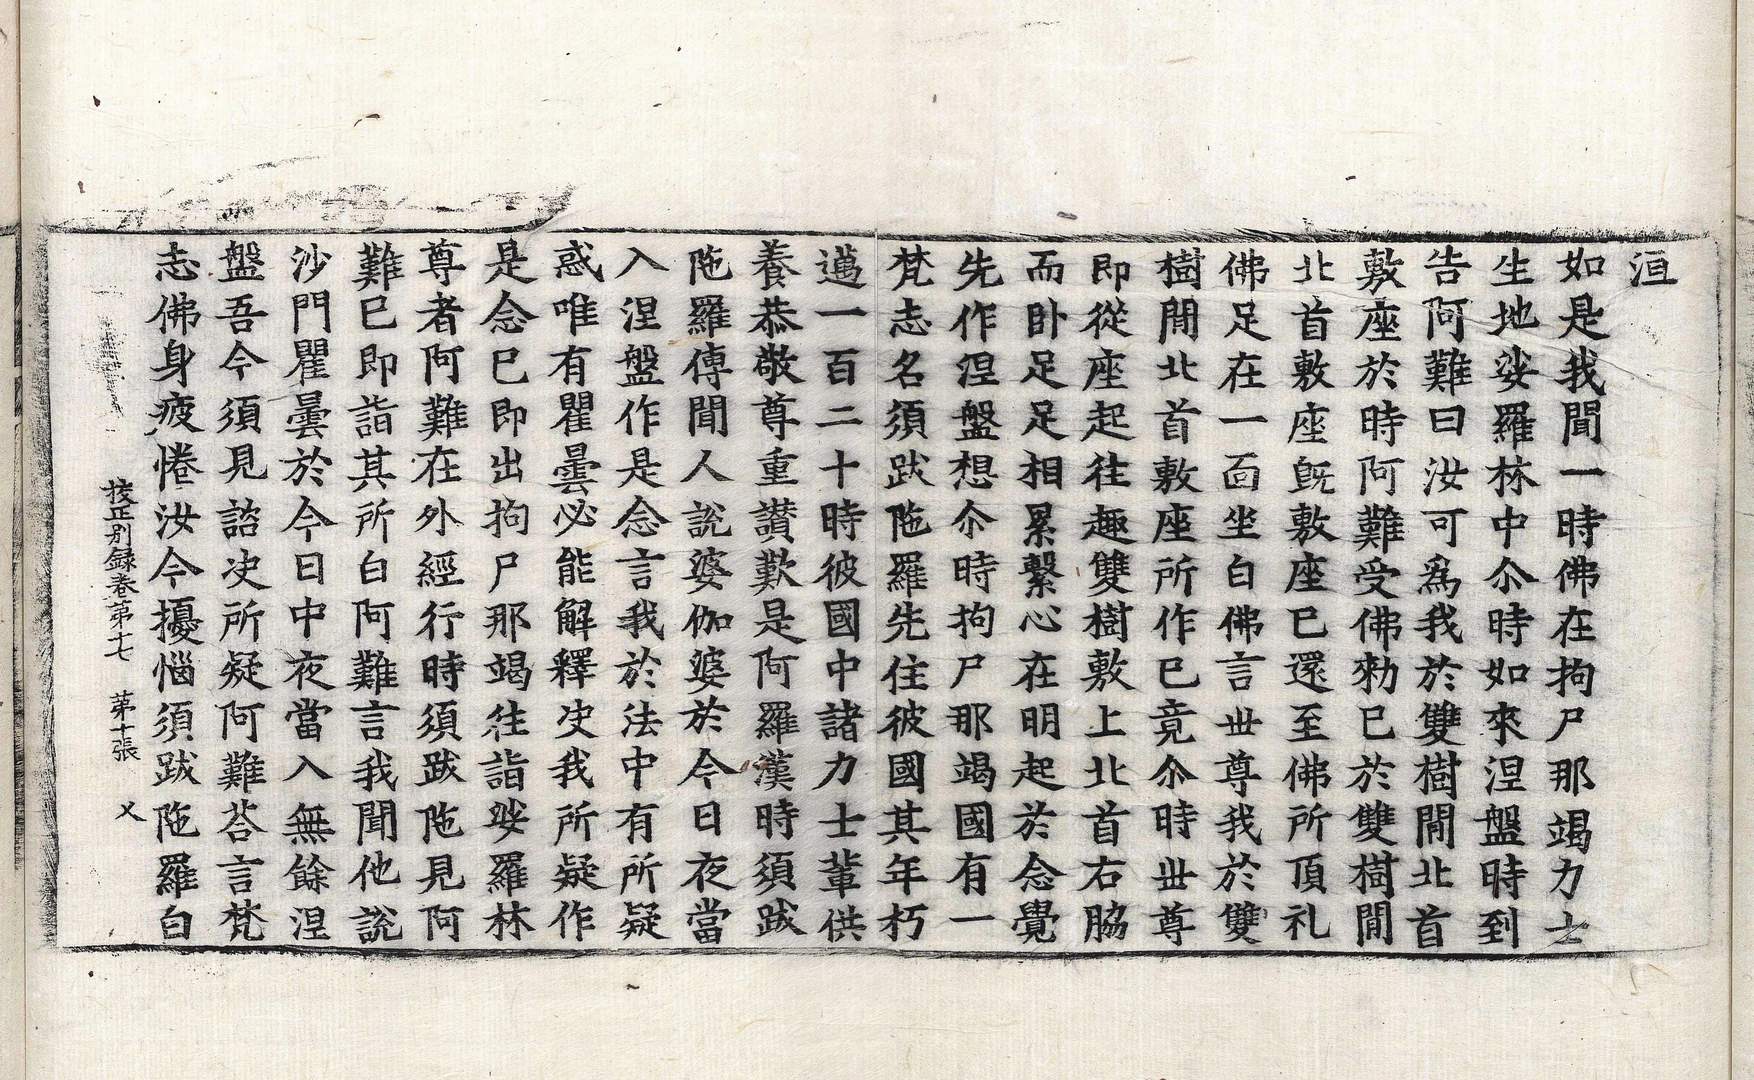 洹
如是我聞一時佛在拘尸那竭力士
生地娑羅林中尒時如來涅盤時到
告阿難曰汝可爲我於雙樹間北首
敷座於時阿難受佛勑已於雙樹間
北首敷座旣敷座已還至佛所頂礼
佛足在一面坐白佛言丗尊我於雙
樹間北首敷座所作已竟尒時丗尊
即從座起往趣雙樹敷上北首右脇
而卧足足相累繫心在明起於念覺
先作涅盤想尒時拘尸那竭國有一
梵志名須跋陁羅先住彼國其年朽
邁一百二十時彼國中諸力士輩供
養恭敬尊重讃歎是阿羅漢時須跋
陁羅傳聞人說婆伽婆於今日夜當
入涅盤作是念言我於法中有所疑
惑唯有瞿曇必能解釋决我所疑作
是念已即出拘尸那竭往詣娑羅林
尊者阿難在外經行時須跋陁見阿
難已即詣其所白阿難言我聞他說
沙門瞿曇於今日中夜當入無餘涅
盤吾今須見諮决所疑阿難荅言梵
志佛身疲惓汝今擾惱須跋陁羅白
挍正别録卷第十七 第十張 乂